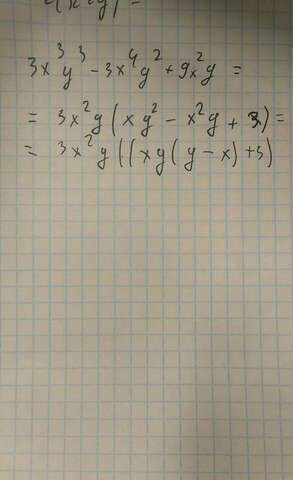 3x³y³ - 3x⁴y² + 9x²y =
= 3x²y(xy² - x²y + 3) =
= 3x²y((xy(y-x)+3)